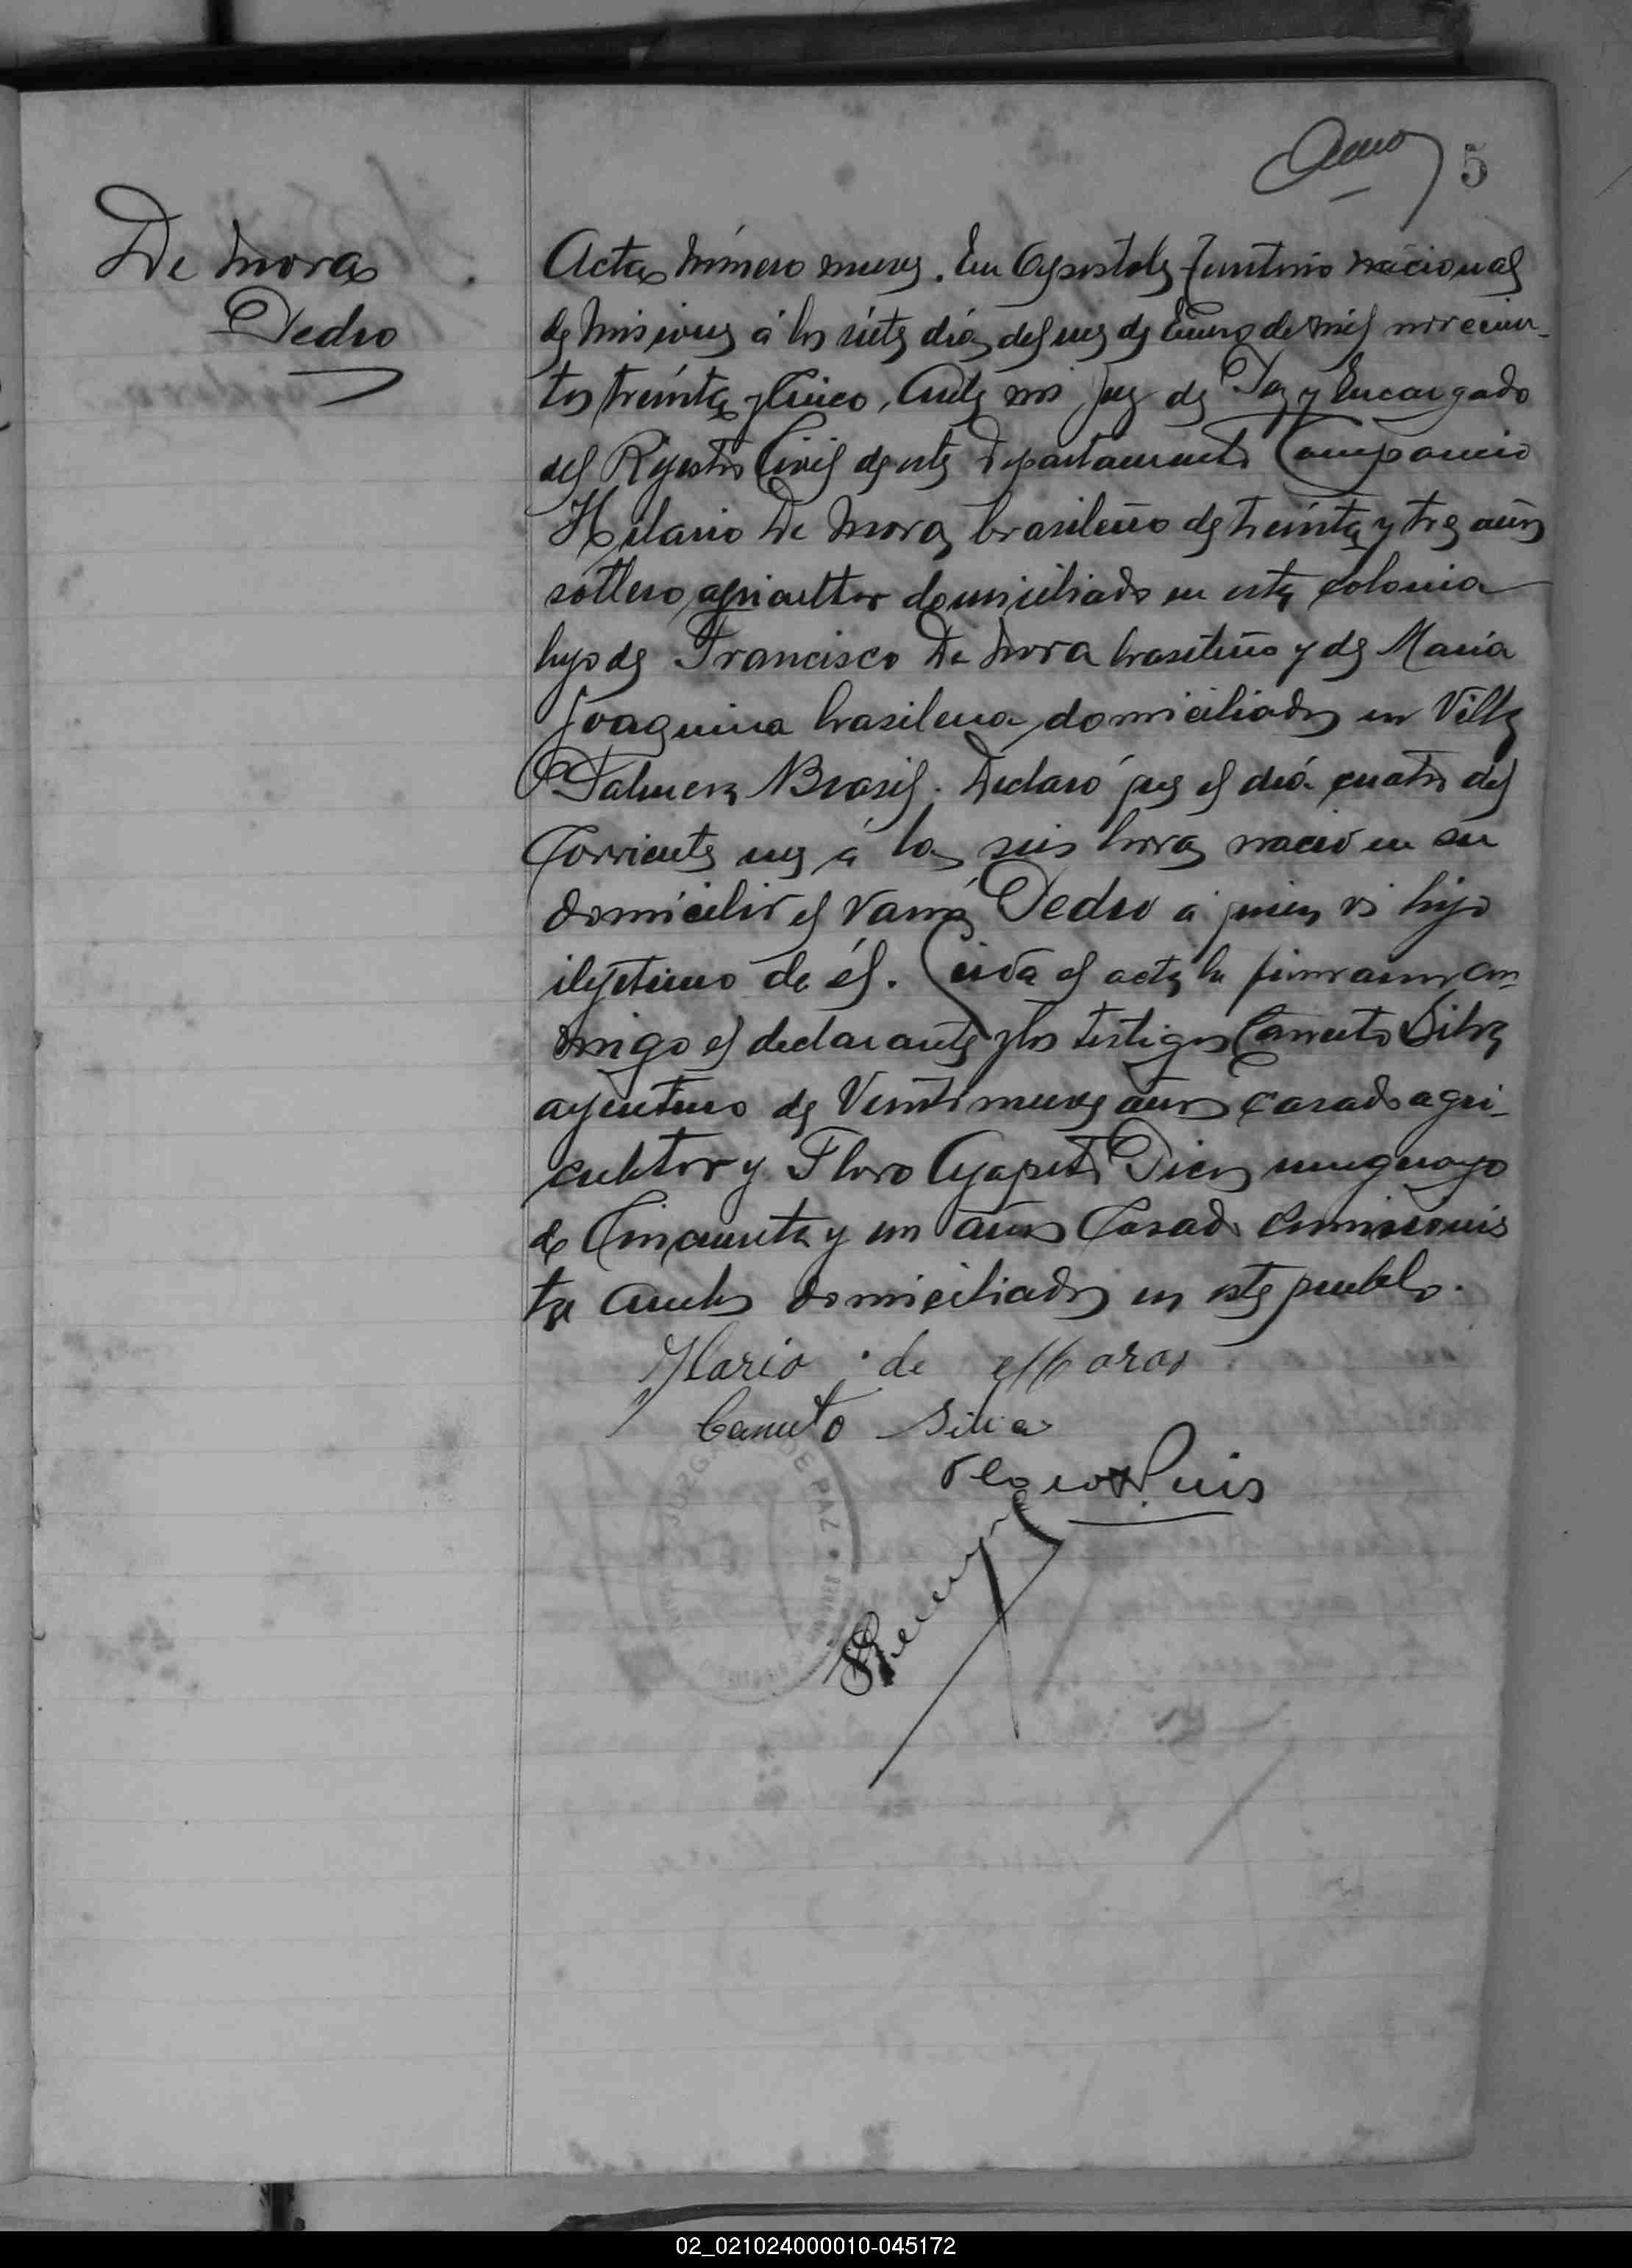 5
De Mora
Pedro
Acta Número nueve. En Apostoles Territorio nacional
de Misiones á los siete días del mes de Enero de mil novecien-
tos treinta y Cinco, Ante mi Juez de Paz y Encargado
del Rejistro Civil de este Departamento Compareció
Hilario De Mora, brasileño de treinta y tres años
soltero agricultor domiciliado en esta colonia
hijo de Francisco De Mora brasileño y de María
Joaquina brasilena, domiciliados en Villa
Palmera Brasil. Declaró que el día cuatro del
Corriente mes á las seis horas nació en su
domicilio el varon Pedro á quien vi hijo
ilejitimo de él. Leida el acta la firmaron con-
migo el declarante y los testigos Canuto Silva
arjentino de Veintinueve años casado agri-
cultor y Floro Agapito Pires uruguayo
de Cincuenta y un años Casado Comisionis
ta ambos domiciliados en este pueblo.
Ilario de Moras
Canuto Silva
JUZGADO DE PAZ